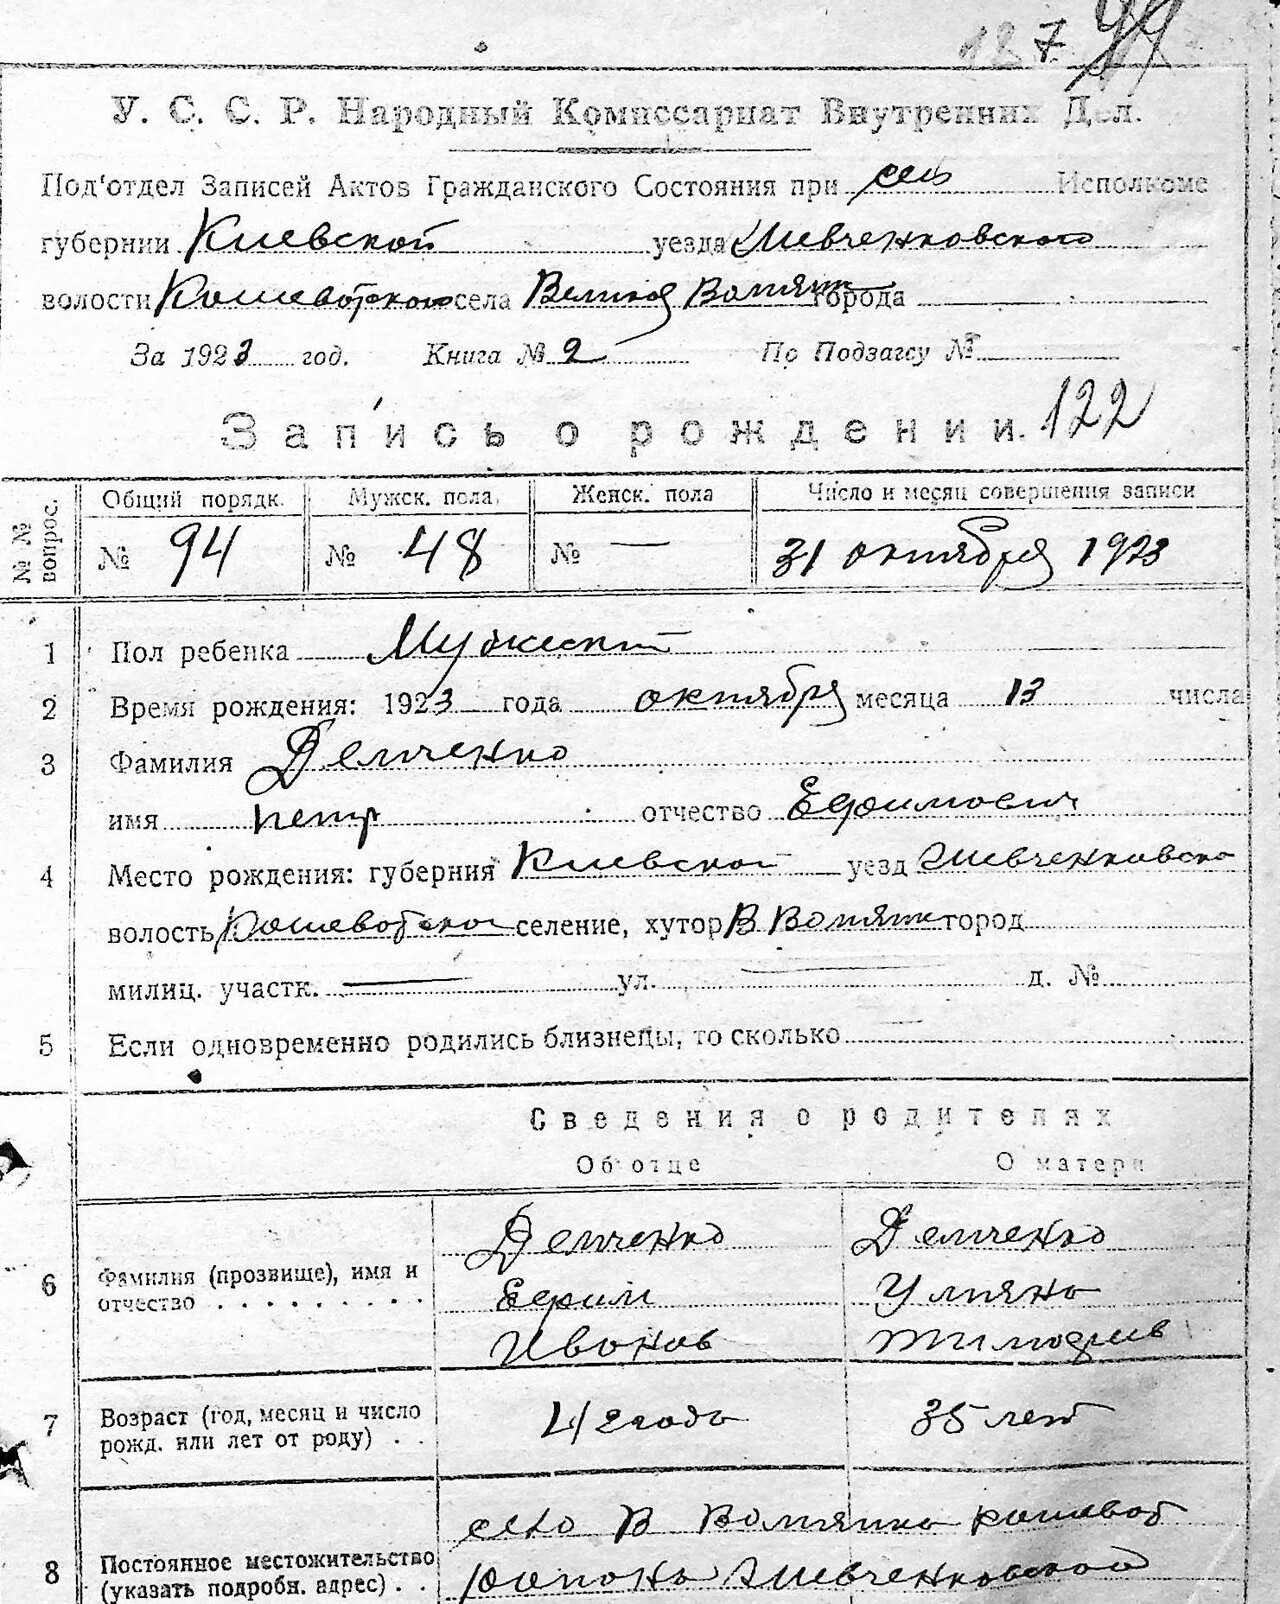 187. 99
У. С. С. Р. Народный Комиссариат Внутренних Дел.
Под'отдел Записей Актов Гражданского Состояния при сель Исполкоме
губернии Киевской уезда Шевченковского
волости села Великая города
За 1923 год. Книга № 2 По Подзагсу №
Запись о рождении. 122
№ № вопрос.
Общий порядк. Мужск. пола. Женск. пола Число и месяц совершения записи
№ 94 № 48 № — 31 октября 1923
1 Пол ребенка Мужеский
2 Время рождения: 1923 года октября месяца 13 числа
3 Фамилия Демченко
имя Петр отчество Ефимович
4 Место рождения: губерния Киевской уезд Шевченковско
волость селение, хутор В город
милиц. участк. — ул. — д. №
5 Если одновременно родились близнецы, то сколько —
Сведения о родителях
Об отце О матери
Демченко Демченко
6 Фамилия (прозвище), имя и Ефим Ульяна
отчество . . . . . . . . . Иванов Тимофеев
7 Возраст (год, месяц и число 42 года 35 лет
рожд. или лет от роду) . .
село В
8 Постоянное местожительство
(указать подробн. адрес) . . района Шевченковской